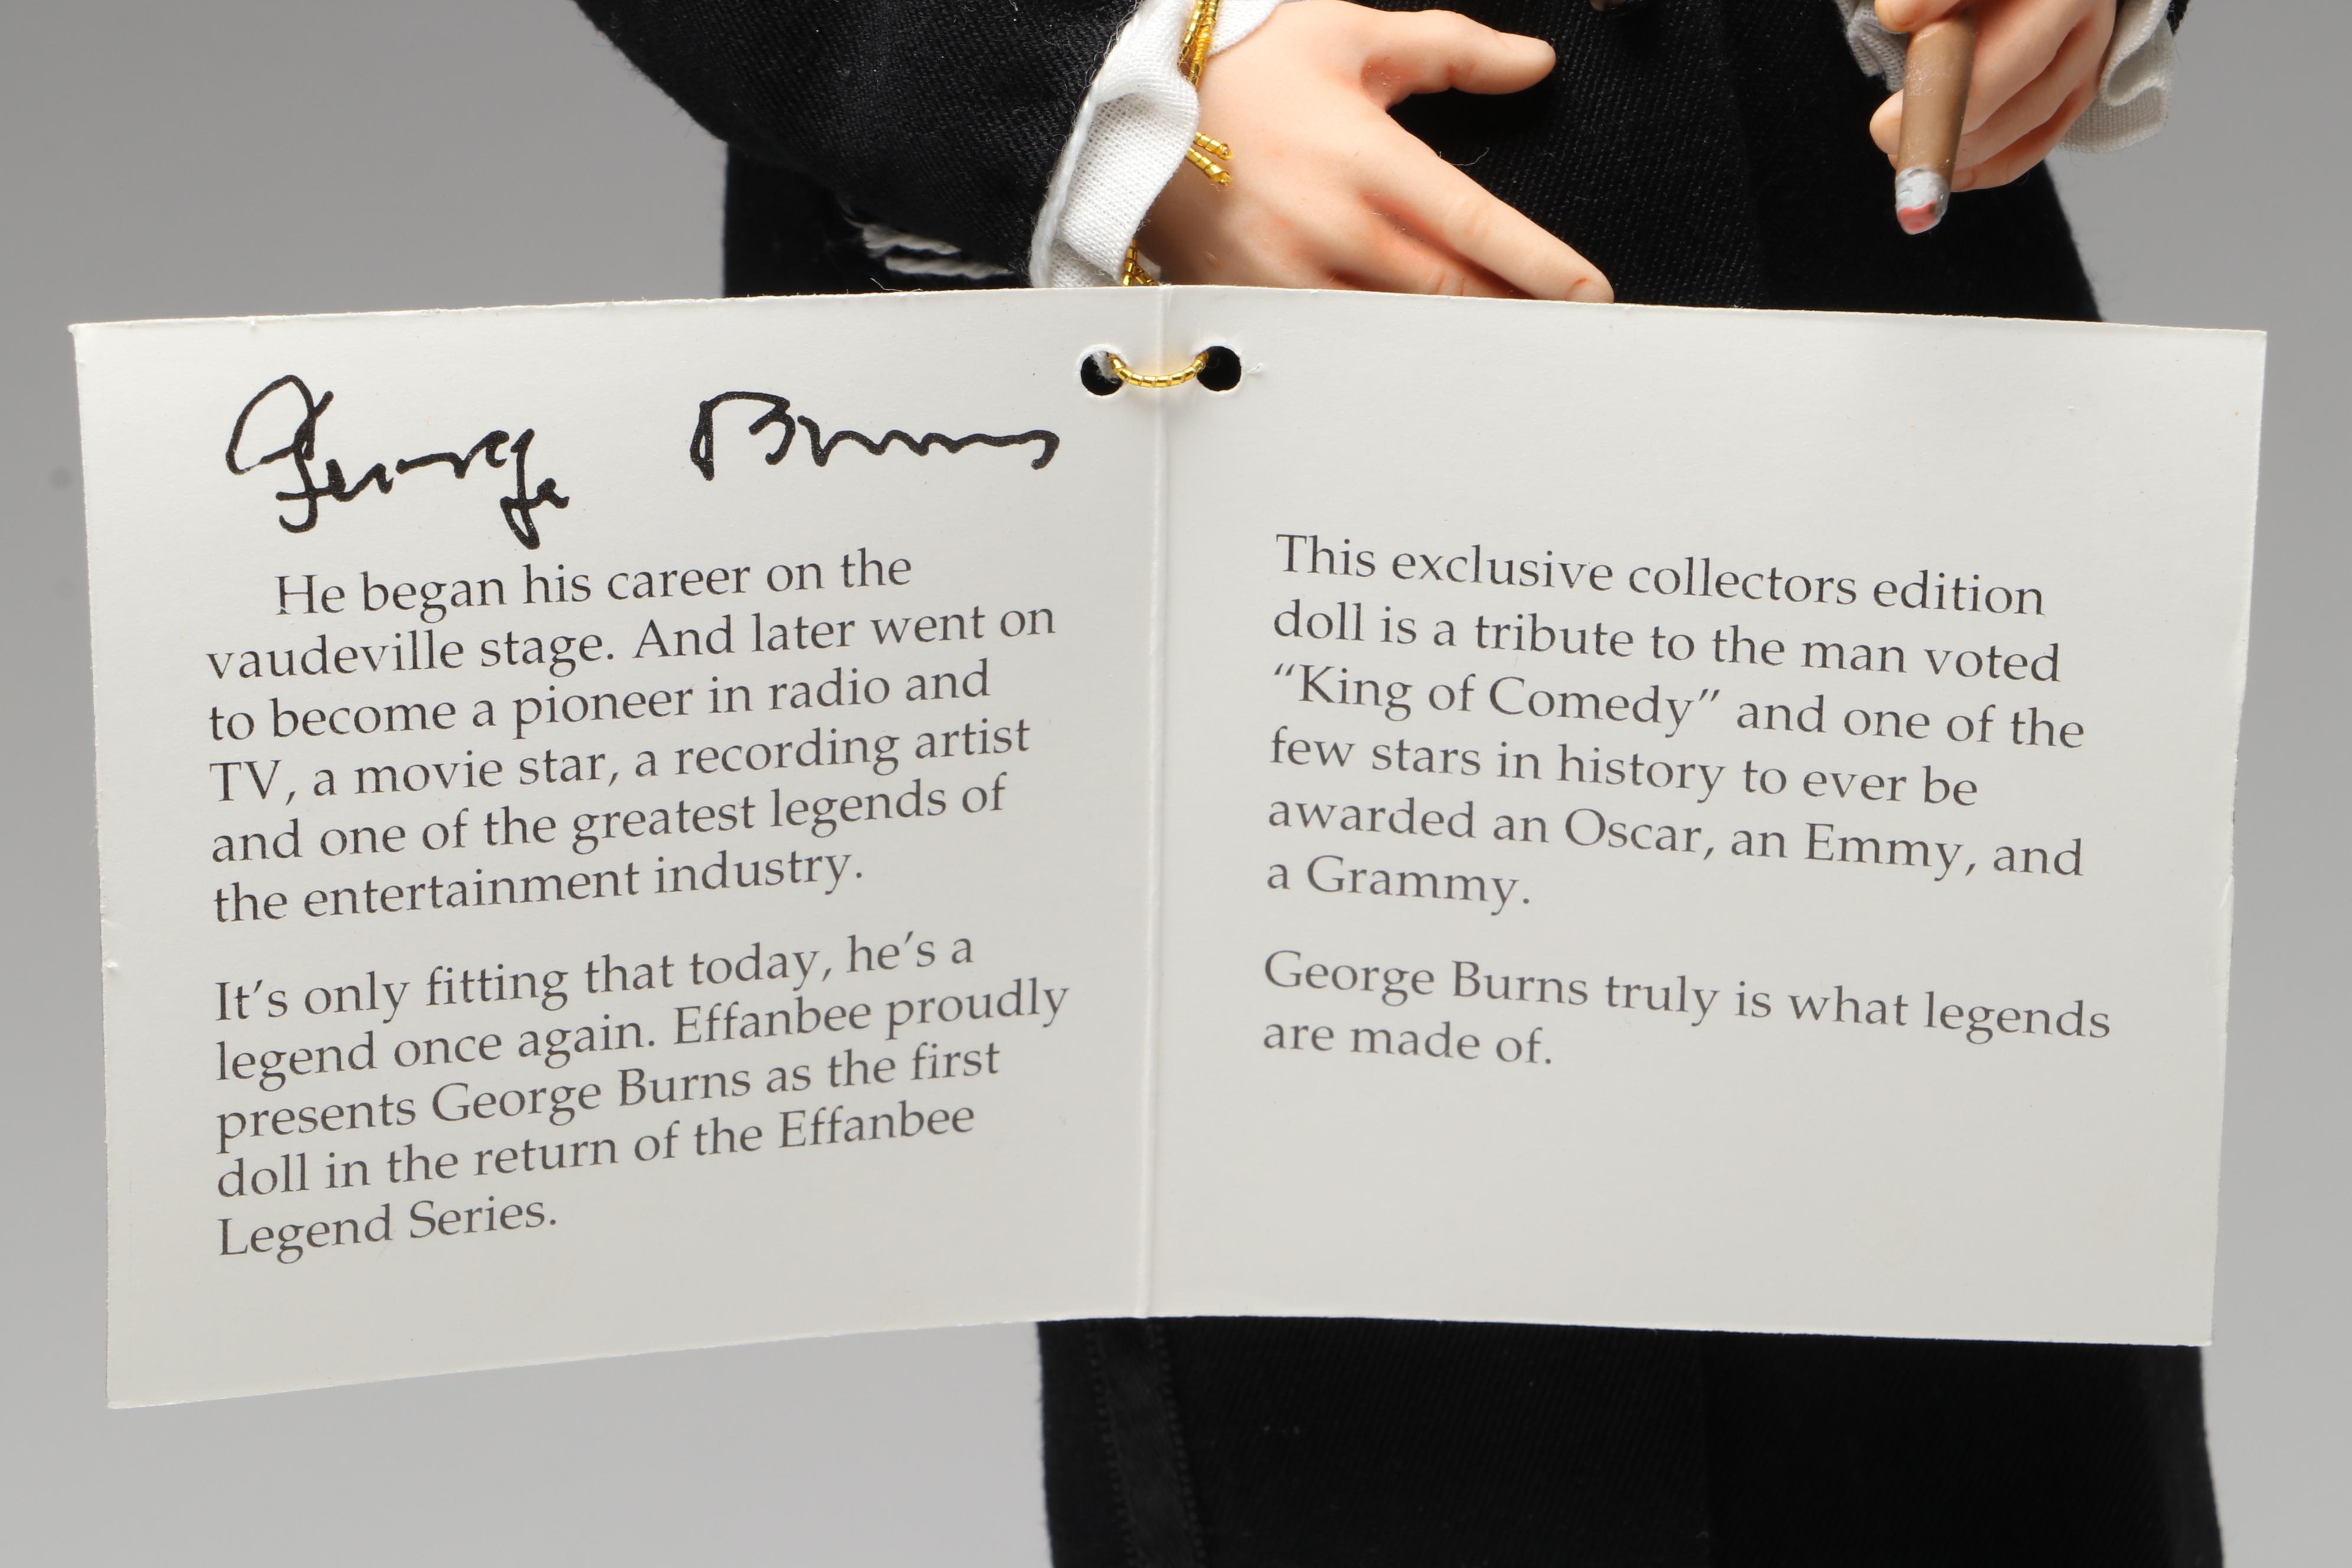 George Burns
He began his career on the
vaudeville stage. And later went on
to become a pioneer in radio and
TV, a movie star, a recording artist
and one of the greatest legends of
the entertainment industry.
It's only fitting that today, he's a
legend once again. Effanbee proudly
presents George Burns as the first
doll in the return of the Effanbee
Legend Series.
This exclusive collectors edition
doll is a tribute to the man voted
“King of Comedy” and one of the
few stars in history to ever be
awarded an Oscar, an Emmy, and
a Grammy.
George Burns truly is what legends
are made of.